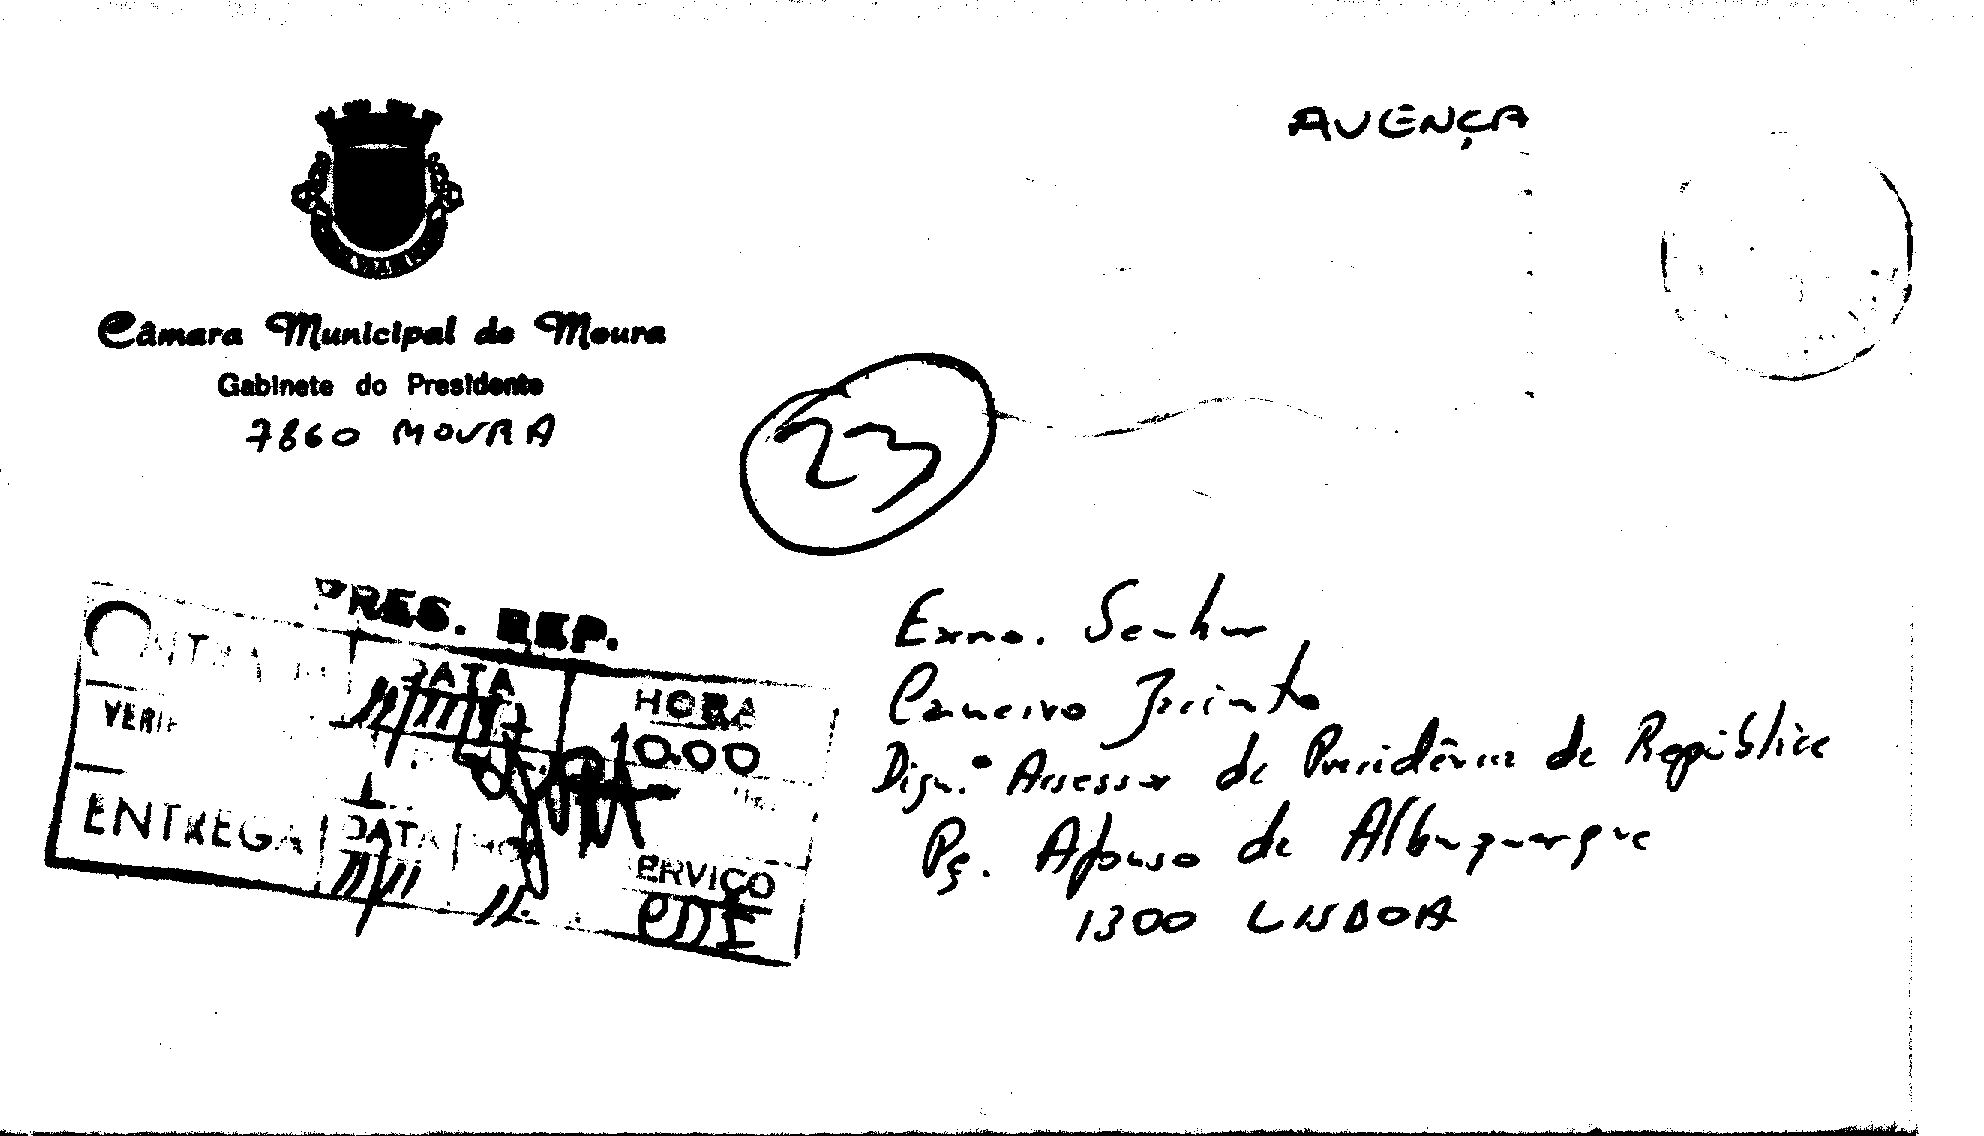 AVENÇA
Câmara Municipal de Moura
Gabinete do Presidente
7860 MOURA
23
PRES. REP.
DATA
HORA
10.00
ENTREGA
DATA
SERVIÇO
Exmo. Senhor
Carneiro Jacinto
Dign.º Assessor da Presidência da República
Pç. Afonso de Albuquerque
1300 LISBOA